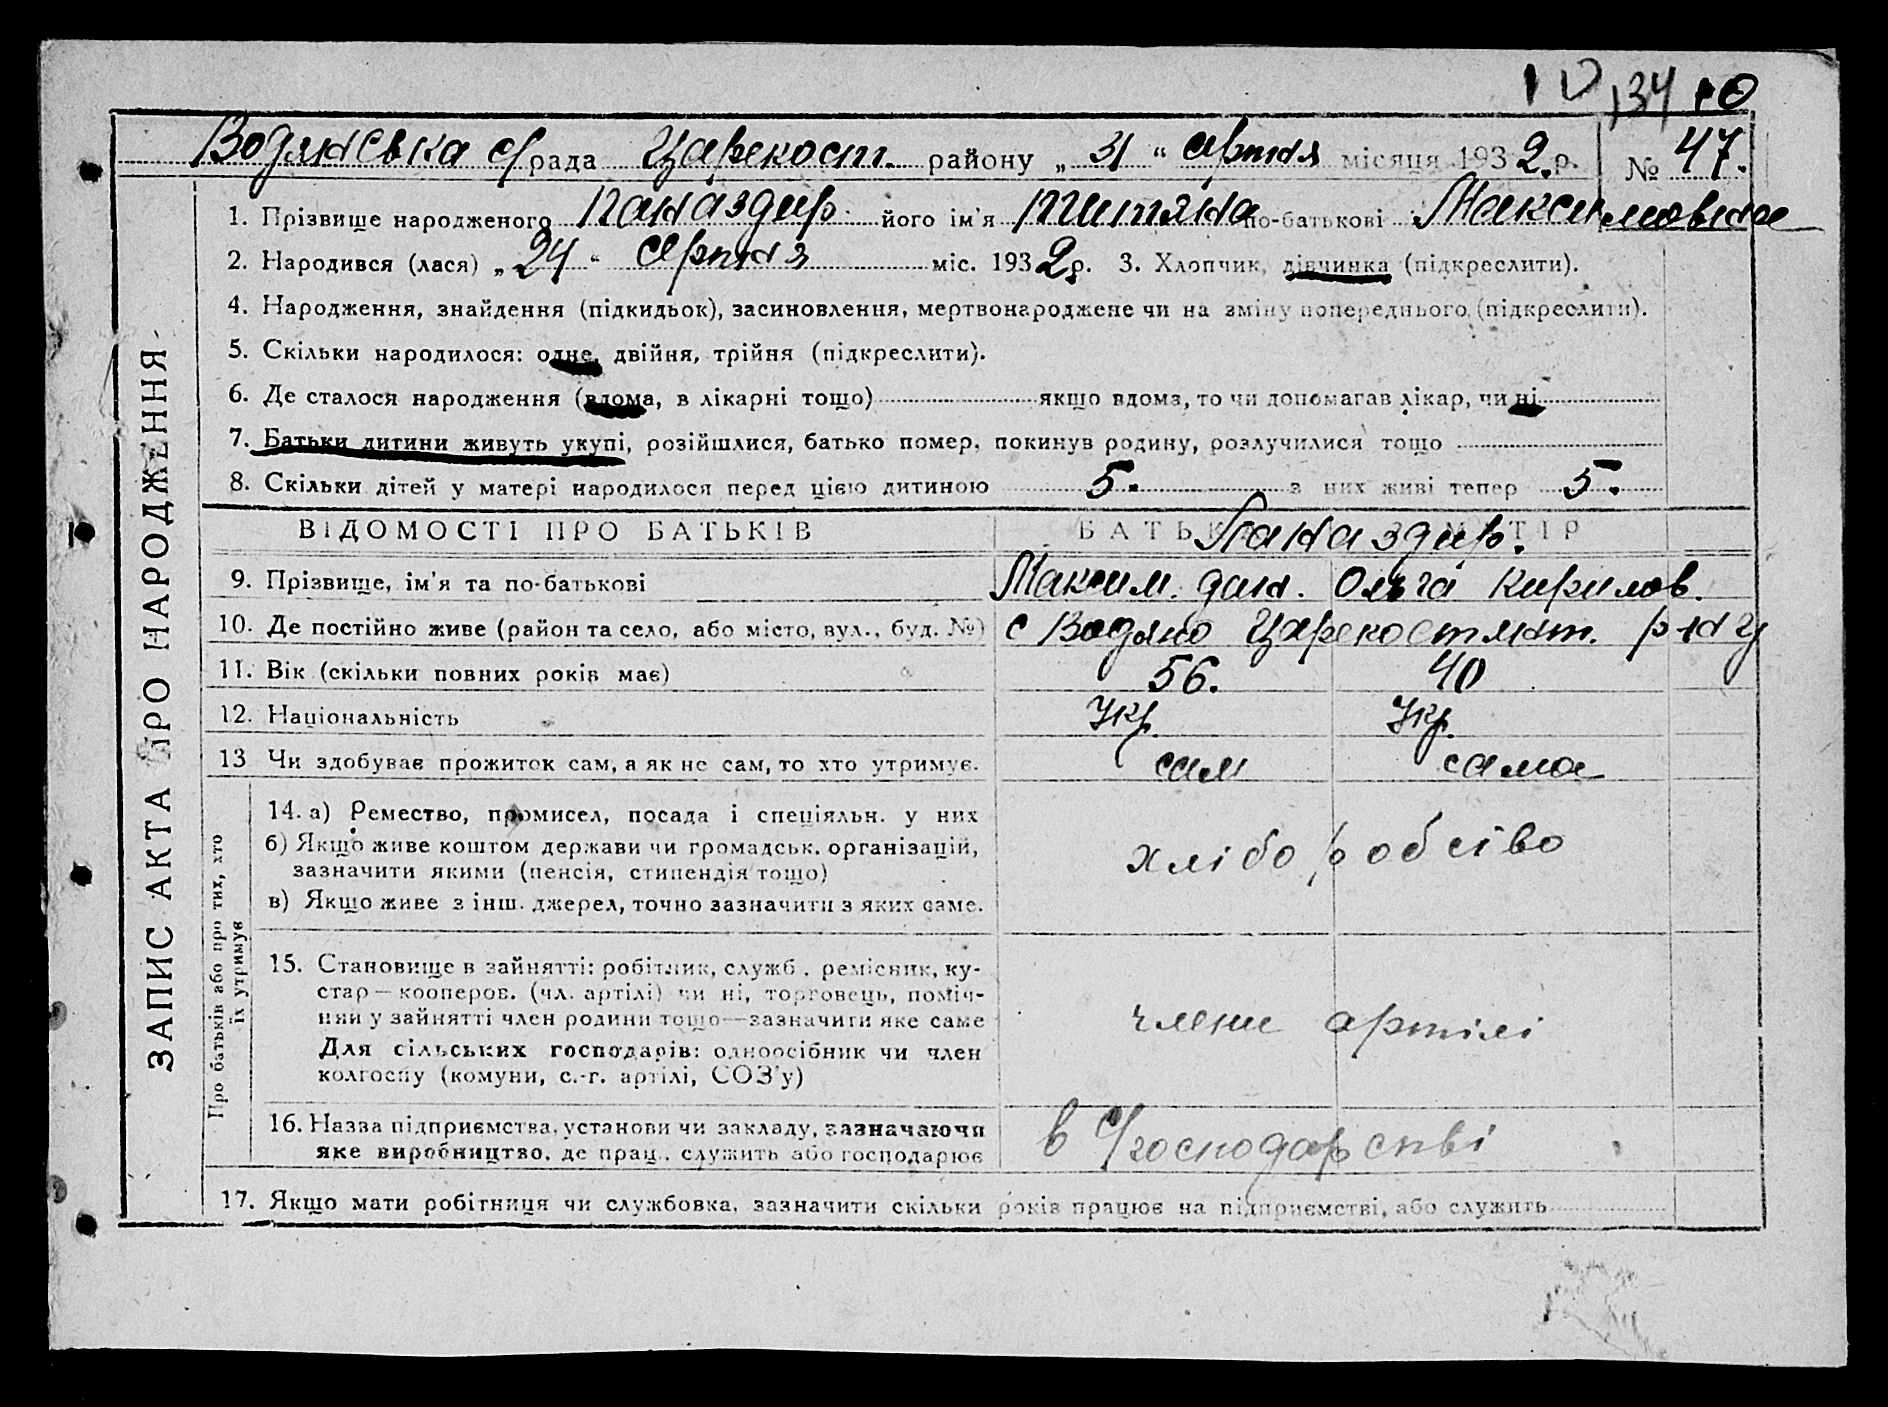 134 10
Водянська с/рада Царекост. району „31“ серпня місяця 1932.р. № 47.
ЗАПИС АКТА ПРО НАРОДЖЕННЯ
1. Прізвище народженого Папаздир його ім'я Титяна по-батькові Максимовна
2. Народився (лася) „24“ серпня міс. 1932р. 3. Хлопчик, дівчинка (підкреслити).
4. Народження, знайдення (підкидьок), засиновлення, мертвонароджене чи на зміну попереднього (підкреслити).
5. Скільки народилося: одне, двійня, трійня (підкреслити).
6. Де сталося народження (вдома, в лікарні тощо) якщо вдома, то чи допомагав лікар, чи ні
7. Батьки дитини живуть укупі, розійшлися, батько помер, покинув родину, розлучилися тощо
8. Скільки дітей у матері народилося перед цією дитиною 5. з них живі тепер 5.
ВІДОМОСТІ ПРО БАТЬКІВ БАТЬКО МАТІР
Папаздир.
9. Прізвище, ім'я та по-батькові Максим. дан. Ольга Кирилов.
10. Де постійно живе (район та село, або місто, вул., буд. №) с Водяно Царекостянт. р-ну
11. Вік (скільки повних років має) 56. 40
12. Національність Укр. Укр.
13 Чи здобуває прожиток сам, а як не сам, то хто утримує. сам сама
Про батьків або про тих, хто
їх утримує
14. а) Ремество, промисел, посада і спеціяльн. у них
б) Якщо живе коштом держави чи громадськ. організацій,
зазначити якими (пенсія, стипендія тощо)
в) Якщо живе з інш. джерел, точно зазначити з яких саме.
хліборобство
15. Становище в зайнятті: робітник, служб., ремісник, ку-
стар—коопеpов. (чл. артілі) чи ні, торговець, поміч-
ний у зайнятті член родини тощо—зазначити яке саме
Для сільських господарів: одноосібник чи член
колгоспу (комуни, с.-г. артілі, СОЗ'у)
члени артілі
16. Назва підприємства, установи чи закладу, зазначаючи
яке виробництво, де прац., служить або господарює
в с/господарстві
17. Якщо мати робітниця чи службовка, зазначити скільки років працює на підприємстві, або служить